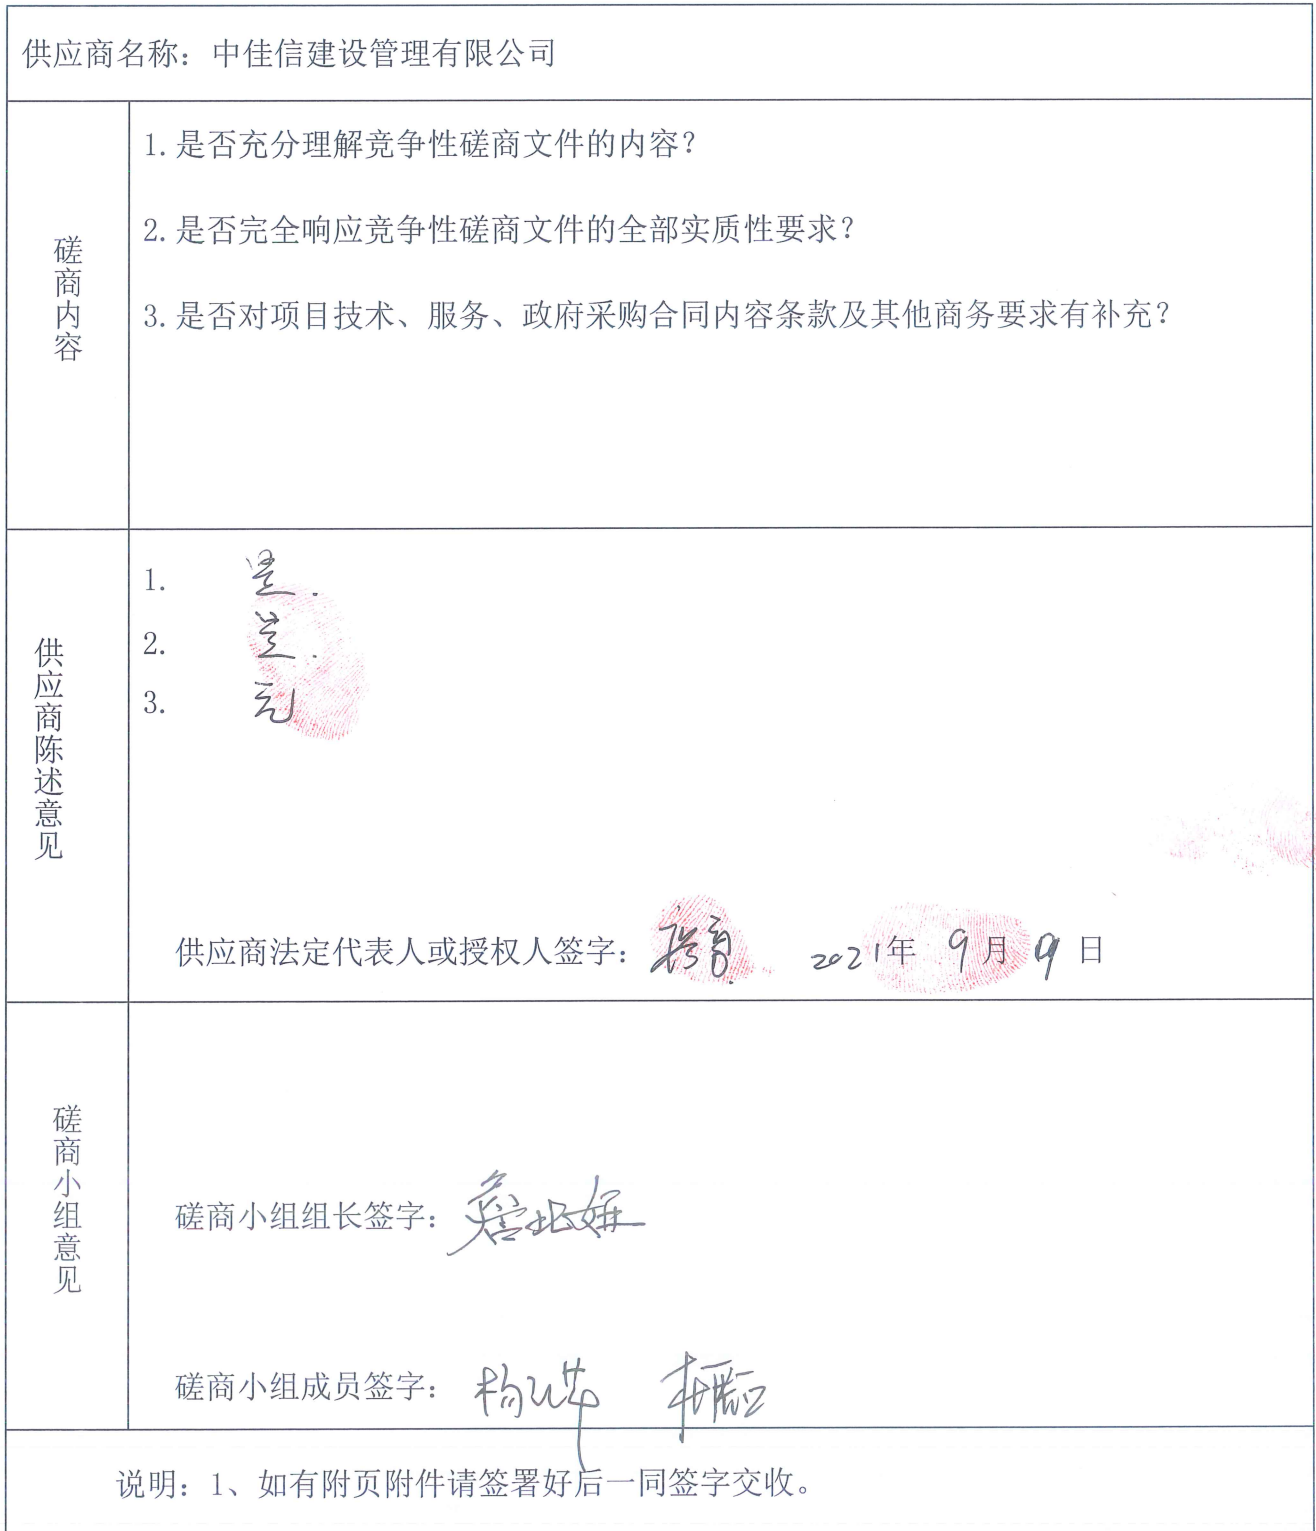 供应商名称：中佳信建设管理有限公司
磋商内容
1.是否充分理解竞争性磋商文件的内容？
2.是否完全响应竞争性磋商文件的全部实质性要求？
3.是否对项目技术、服务、政府采购合同内容条款及其他商务要求有补充？
供应商陈述意见
1. 是.
2. 是.
3. 无
供应商法定代表人或授权人签字： 2021年 9月 9日
磋商小组意见
磋商小组组长签字：
磋商小组成员签字： 杨
说明：1、如有附页附件请签署好后一同签字交收。